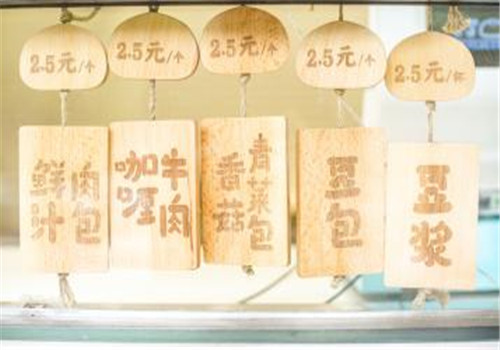 2.5元/个
2.5元/个
2.5元/个
2.5元/个
2.5元/杯
鲜汁
肉包
咖喱
牛肉
香菇
青菜包
豆包
豆浆